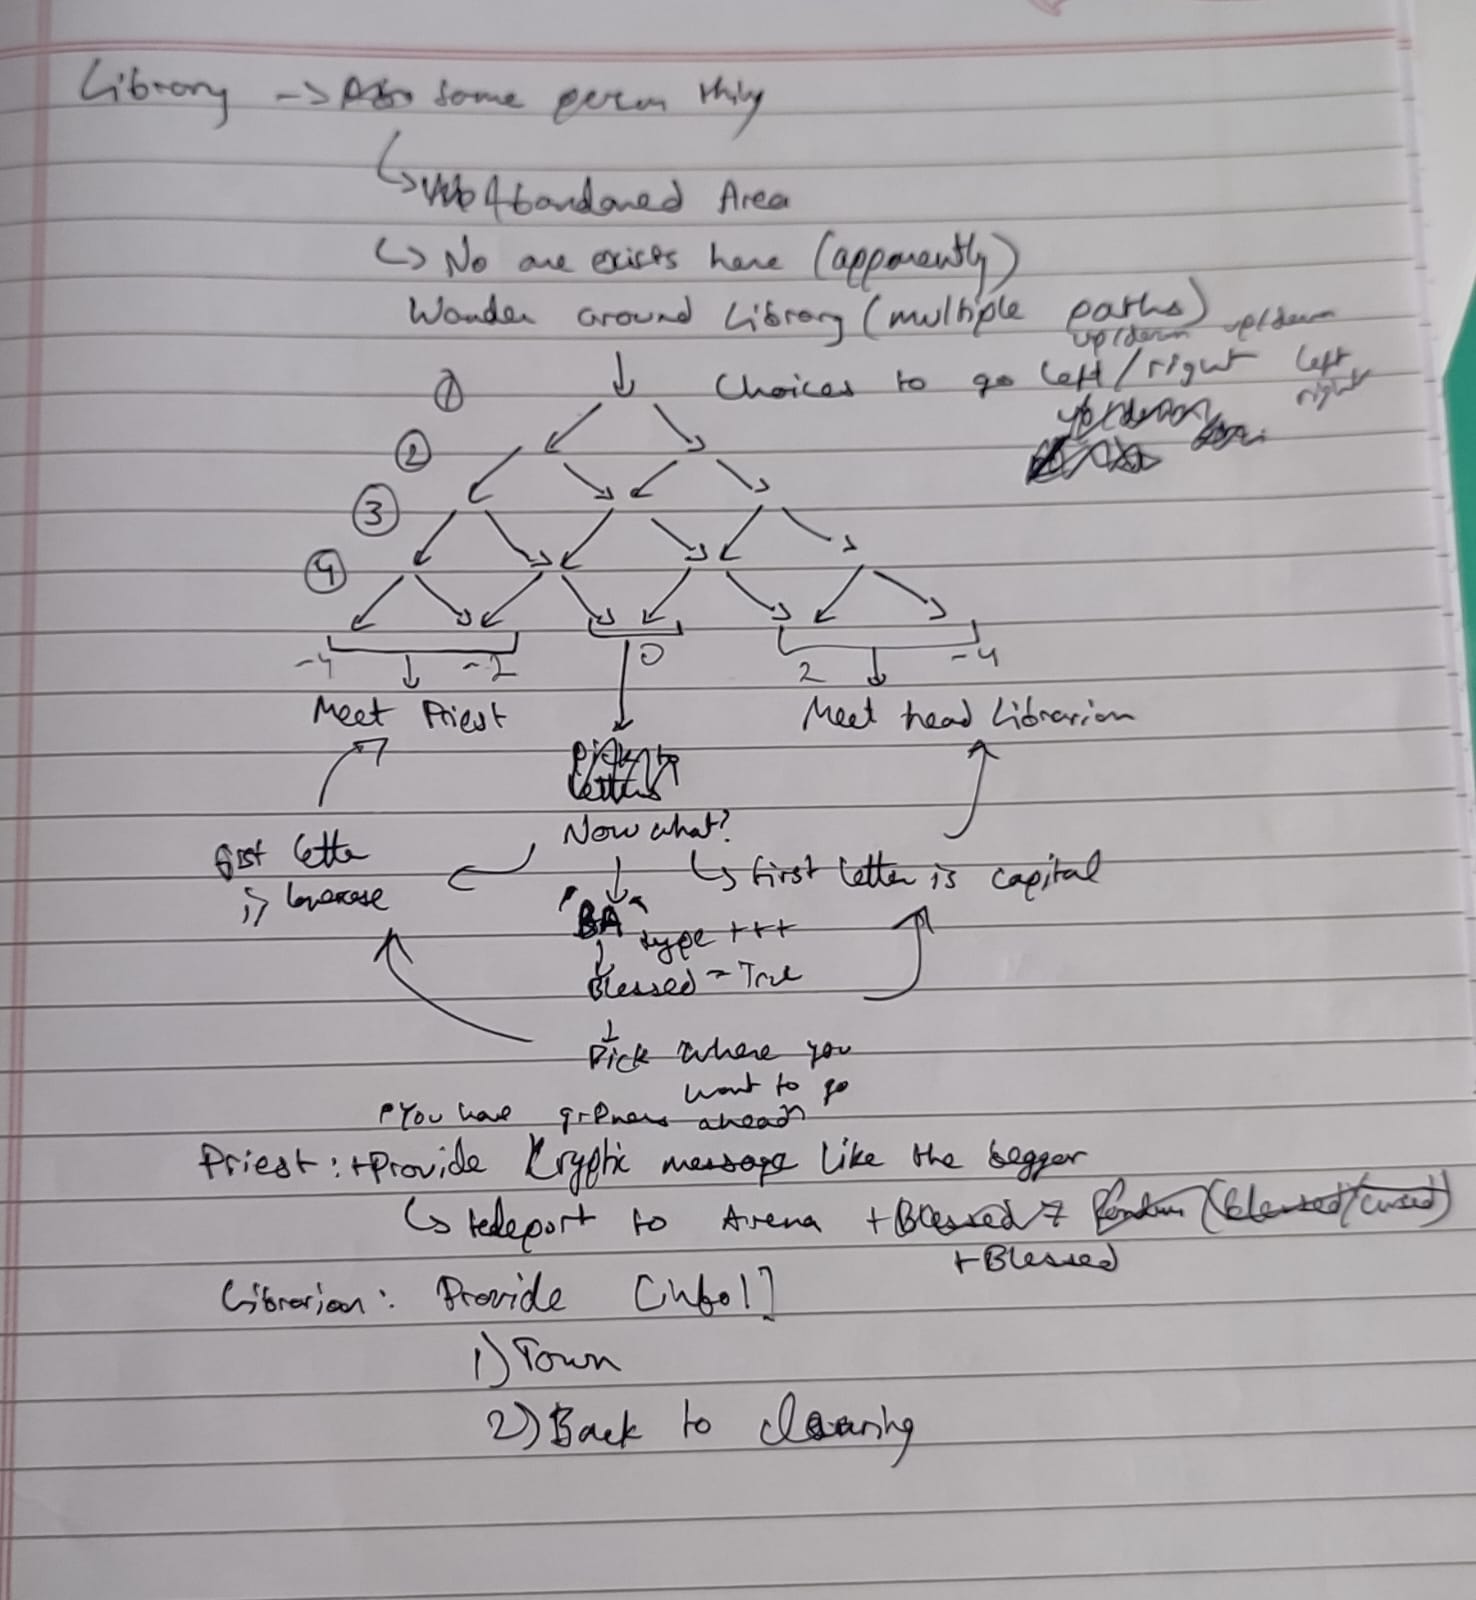 Library -> some person thing
Abandoned Area
No one exists here (apparently)
Wander around Library (multiple paths)
up/down up/down
① Choices to go left/right left
right
②
③
④
-4 -2 0 2 -4
Meet Priest Meet head Librarian
Now what?
first letter is lowercase
first letter is capital
"BA" type +++
Blessed = True
Pick where you
want to go
"You have ahead"
Priest: +Provide Kryptic message like the beggar
teleport to Arena +Blessed
+Blessed
Librarian: Provide [info1]
1) Town
2) Back to clearing